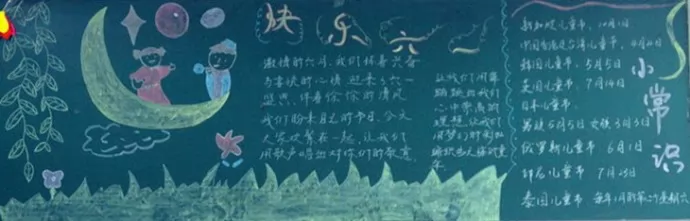 快乐六一
激情的六月,我们怀着兴奋
与喜悦的心情迎来了六一
盛典,伴着徐徐的清风
我们盼来自己的节日,今天
大家欢聚在一起,让我们
用歌声唱出对你们的敬意
让我们用
心中
理想,让我
小常识
新加坡儿童节,10月1日
中国香港及台湾儿童节,4月4日
韩国儿童节,5月5日
美国儿童节,7月14日
日本儿童节,
男孩5月5日 女孩3月3日
俄罗斯儿童节 6月1日
印尼儿童节 7月23日
泰国儿童节 每年1月的第二个星期六